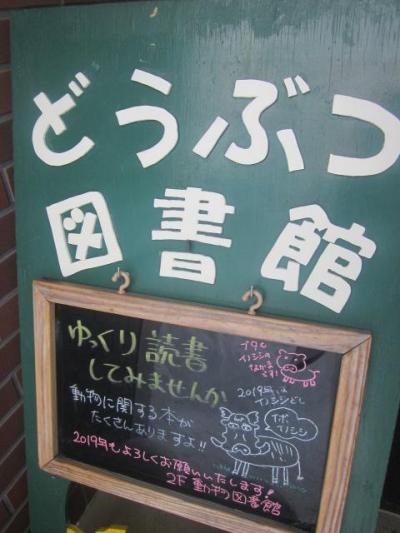 どうぶつ
図書館
ゆっくり読書
してみませんか
動物に関する本が
たくさんありますよ!!
ブタも
イノシシの
なかま
です!
2019年は
イノシシどし
イボ
イノシシ
2019年もよろしくお願いいたします!
2F 動物図書館